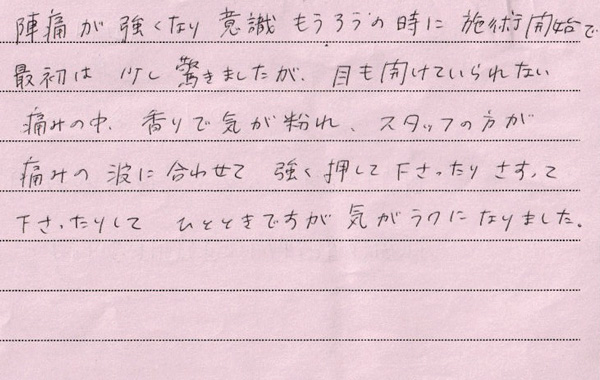 陣痛が強くなり意識もうろうの時に施術開始で
最初は少し驚きましたが、目も開けていられない
痛みの中、香りで気が粉れ、スタッフの方が
痛みの波に合わせて強く押して下さったりさすって
下さったりしてひとときですが気がラクになりました。